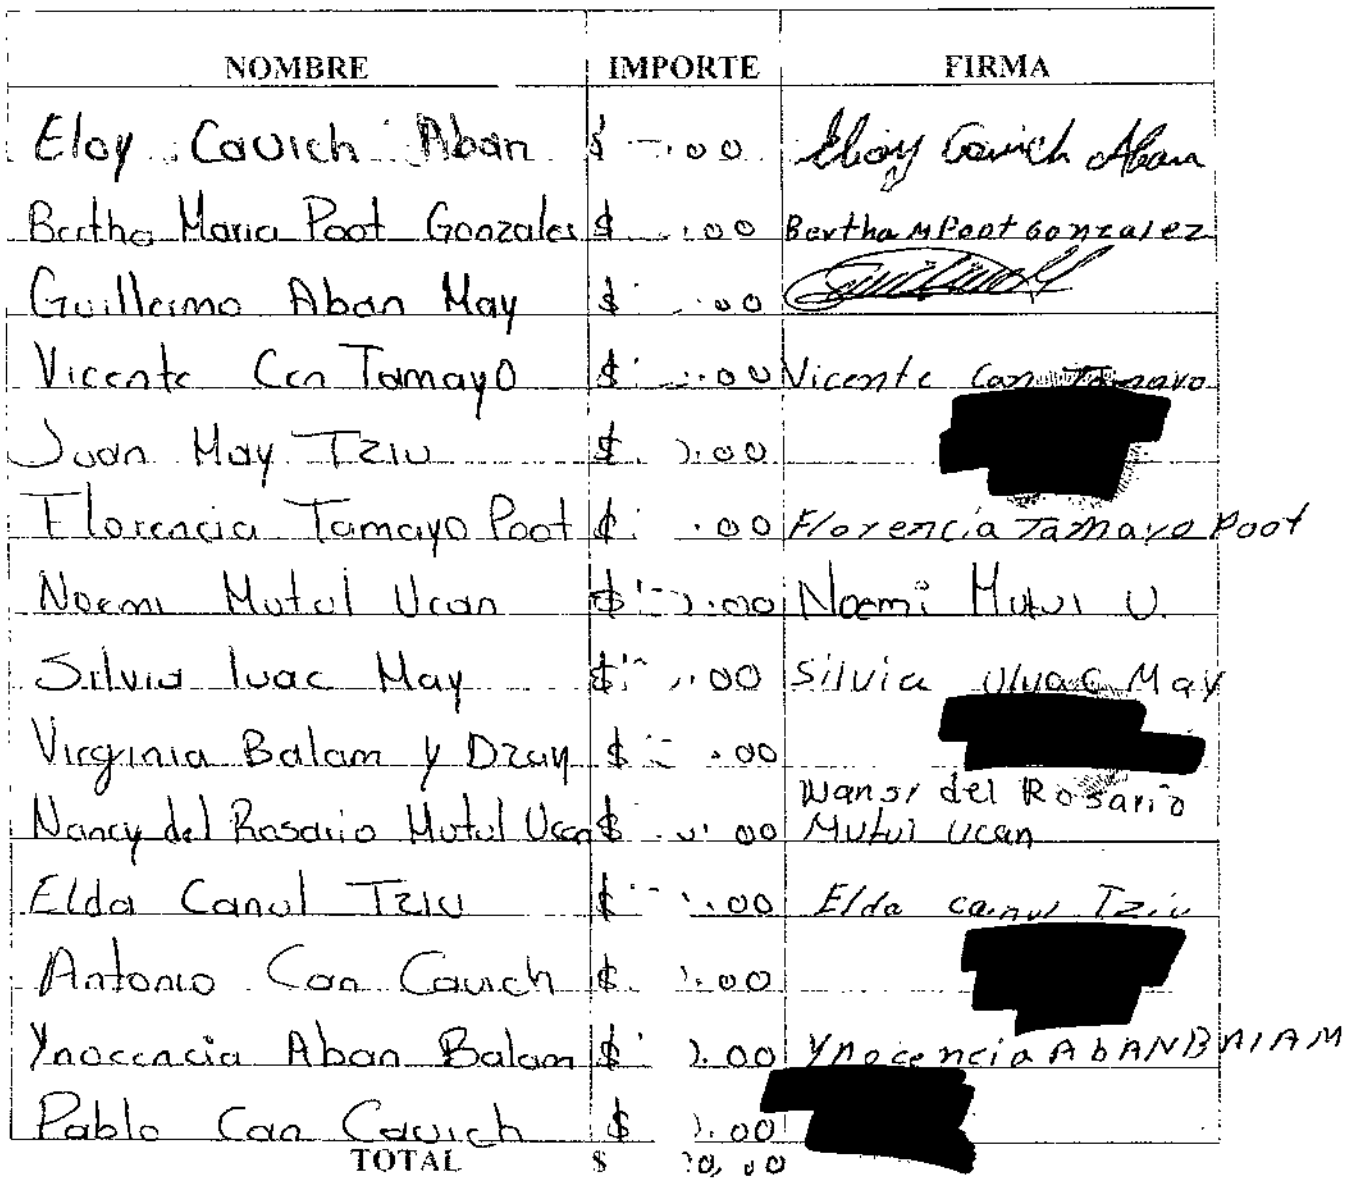 NOMBRE IMPORTE FIRMA
Eloy Cauich Aban $ .00 Eloy Cauich Aban
Bertha Maria Poot Gonzales $ .00 Bertha M Poot Gonzalez
Guillermo Aban May $ .00
Vicente Can Tamayo $ .00 Vicente Can Tamayo
Juan May Tziu $ .00
Florencia Tamayo Poot $ .00 Florencia Tamayo Poot
Noemi Mutul Ucan $ .00 Noemi Mutul U.
Silvia Iuac May $ .00 Silvia Uluac May
Virginia Balam y Dzay $ .00
Nancy del Rosario Mutul Ucan $ .00 Nansy del Rosario
Mutul Ucan
Elda Canul Tziu $ .00 Elda canul Tziu
Antonio Can Cauich $ .00
Ynocencia Aban Balam $ .00 Ynocencia AbAN BAlAM
Pablo Can Cauich $ .00
TOTAL $ 0.00